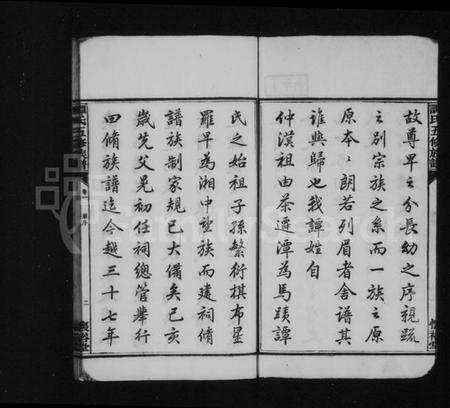 故尊卑之分長幼之序視疏
之別宗族之系而一族之原
原本〻朗若列眉者舍譜其
誰與歸也我譚姓自
仲漠祖由茶遷潭為馬蹟譚
氏之始祖子孫繁衍棋布星
羅早為湘中望族而建祠脩
譜族制家規已大備矣己亥
歲先父晃初任祠總管舉行
四脩族譜迄今越三十七年
譚氏五修族譜
二
FamilySearch